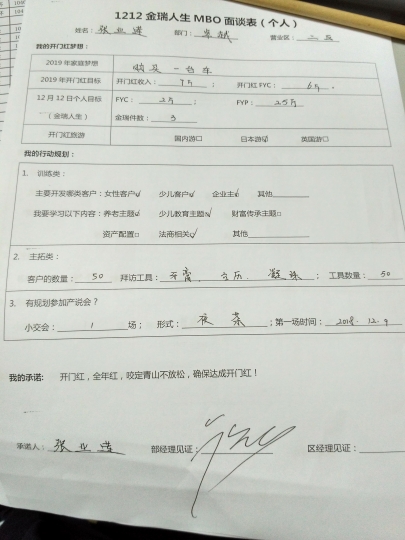 1212 金瑞人生 MBO 面谈表（个人）
姓名： 张业莲 部门： 营业区： 二区
我的开门红梦想：
2019 年家庭梦想 购买一台车
2019 年开门红目标 开门红收入： 万 ； 开门红 FYC： 6万 。
12 月 12 日个人目标（金瑞人生） FYC： 2万 ； FYP： 25万
金瑞件数： 3
开门红旅游 国内游□ 日本游☑ 英国游□
我的行动规划：
1. 训练类：
主要开发哪类客户：女性客户☑ 少儿客户☑ 企业主☑ 其他
我要学习以下内容：养老主题☑ 少儿教育主题☑ 财富传承主题□
资产配置□ 法商相关☑ 其他
2. 主拓类：
客户的数量： 50 拜访工具： 台历、 ；工具数量： 50
3. 有规划参加产说会？
小交会： 1 场； 形式： 夜茶 ；第一场时间： 2018.12.9
我的承诺： 开门红，全年红，咬定青山不放松，确保达成开门红！
承诺人： 张业莲 部经理见证： 区经理见证：